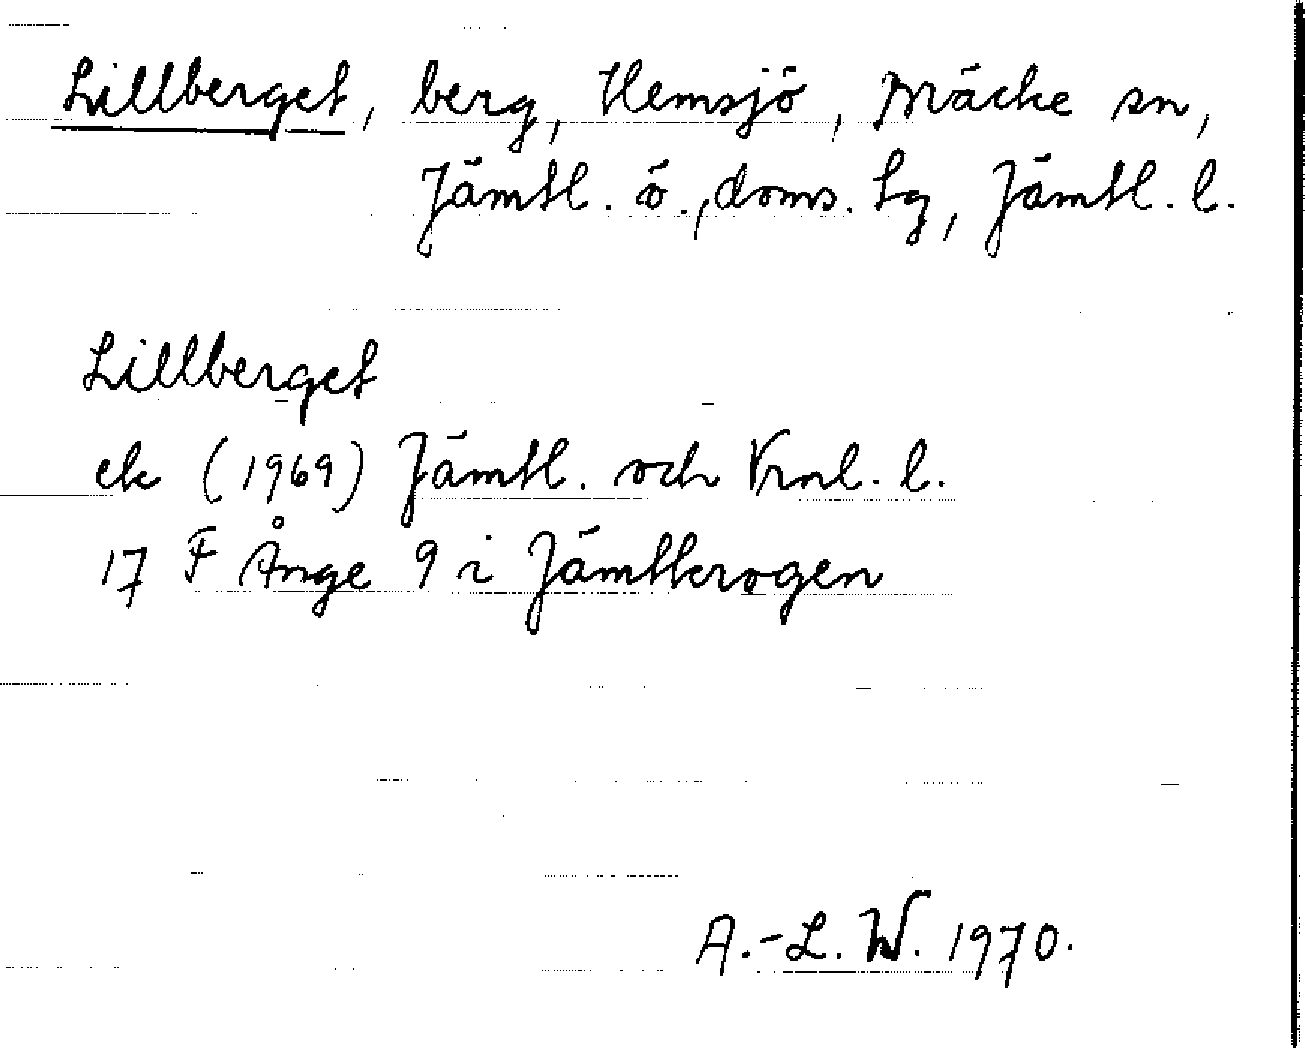 Lillberget, berg, Hemsjö, Bräcke sn,
Jämtl. ö., doms. tg, Jämtl. l.
Lillberget
ek (1969) Jämtl. och Vrnl. l.
17 F Ånge 9 i Jämtkrogen
A.-L. W. 1970.